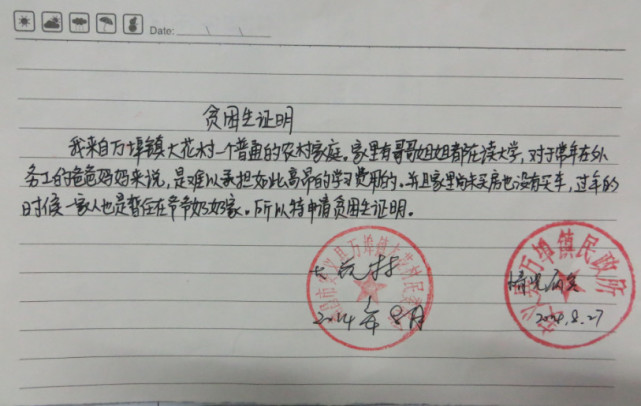 Date:
贫困生证明
我来自万埠镇大花村一个普通的农村家庭。家里有哥哥姐姐都在读大学,对于常年在外
务工的爸爸妈妈来说,是难以承担如此高昂的学习费用的。并且家里尚未买房也没有买车,过年的
时候一家人也是暂住在爷爷奶奶家。所以特申请贫困生证明。
情况属实
2014年8月
2014.8.27
安义县万埠镇民政所